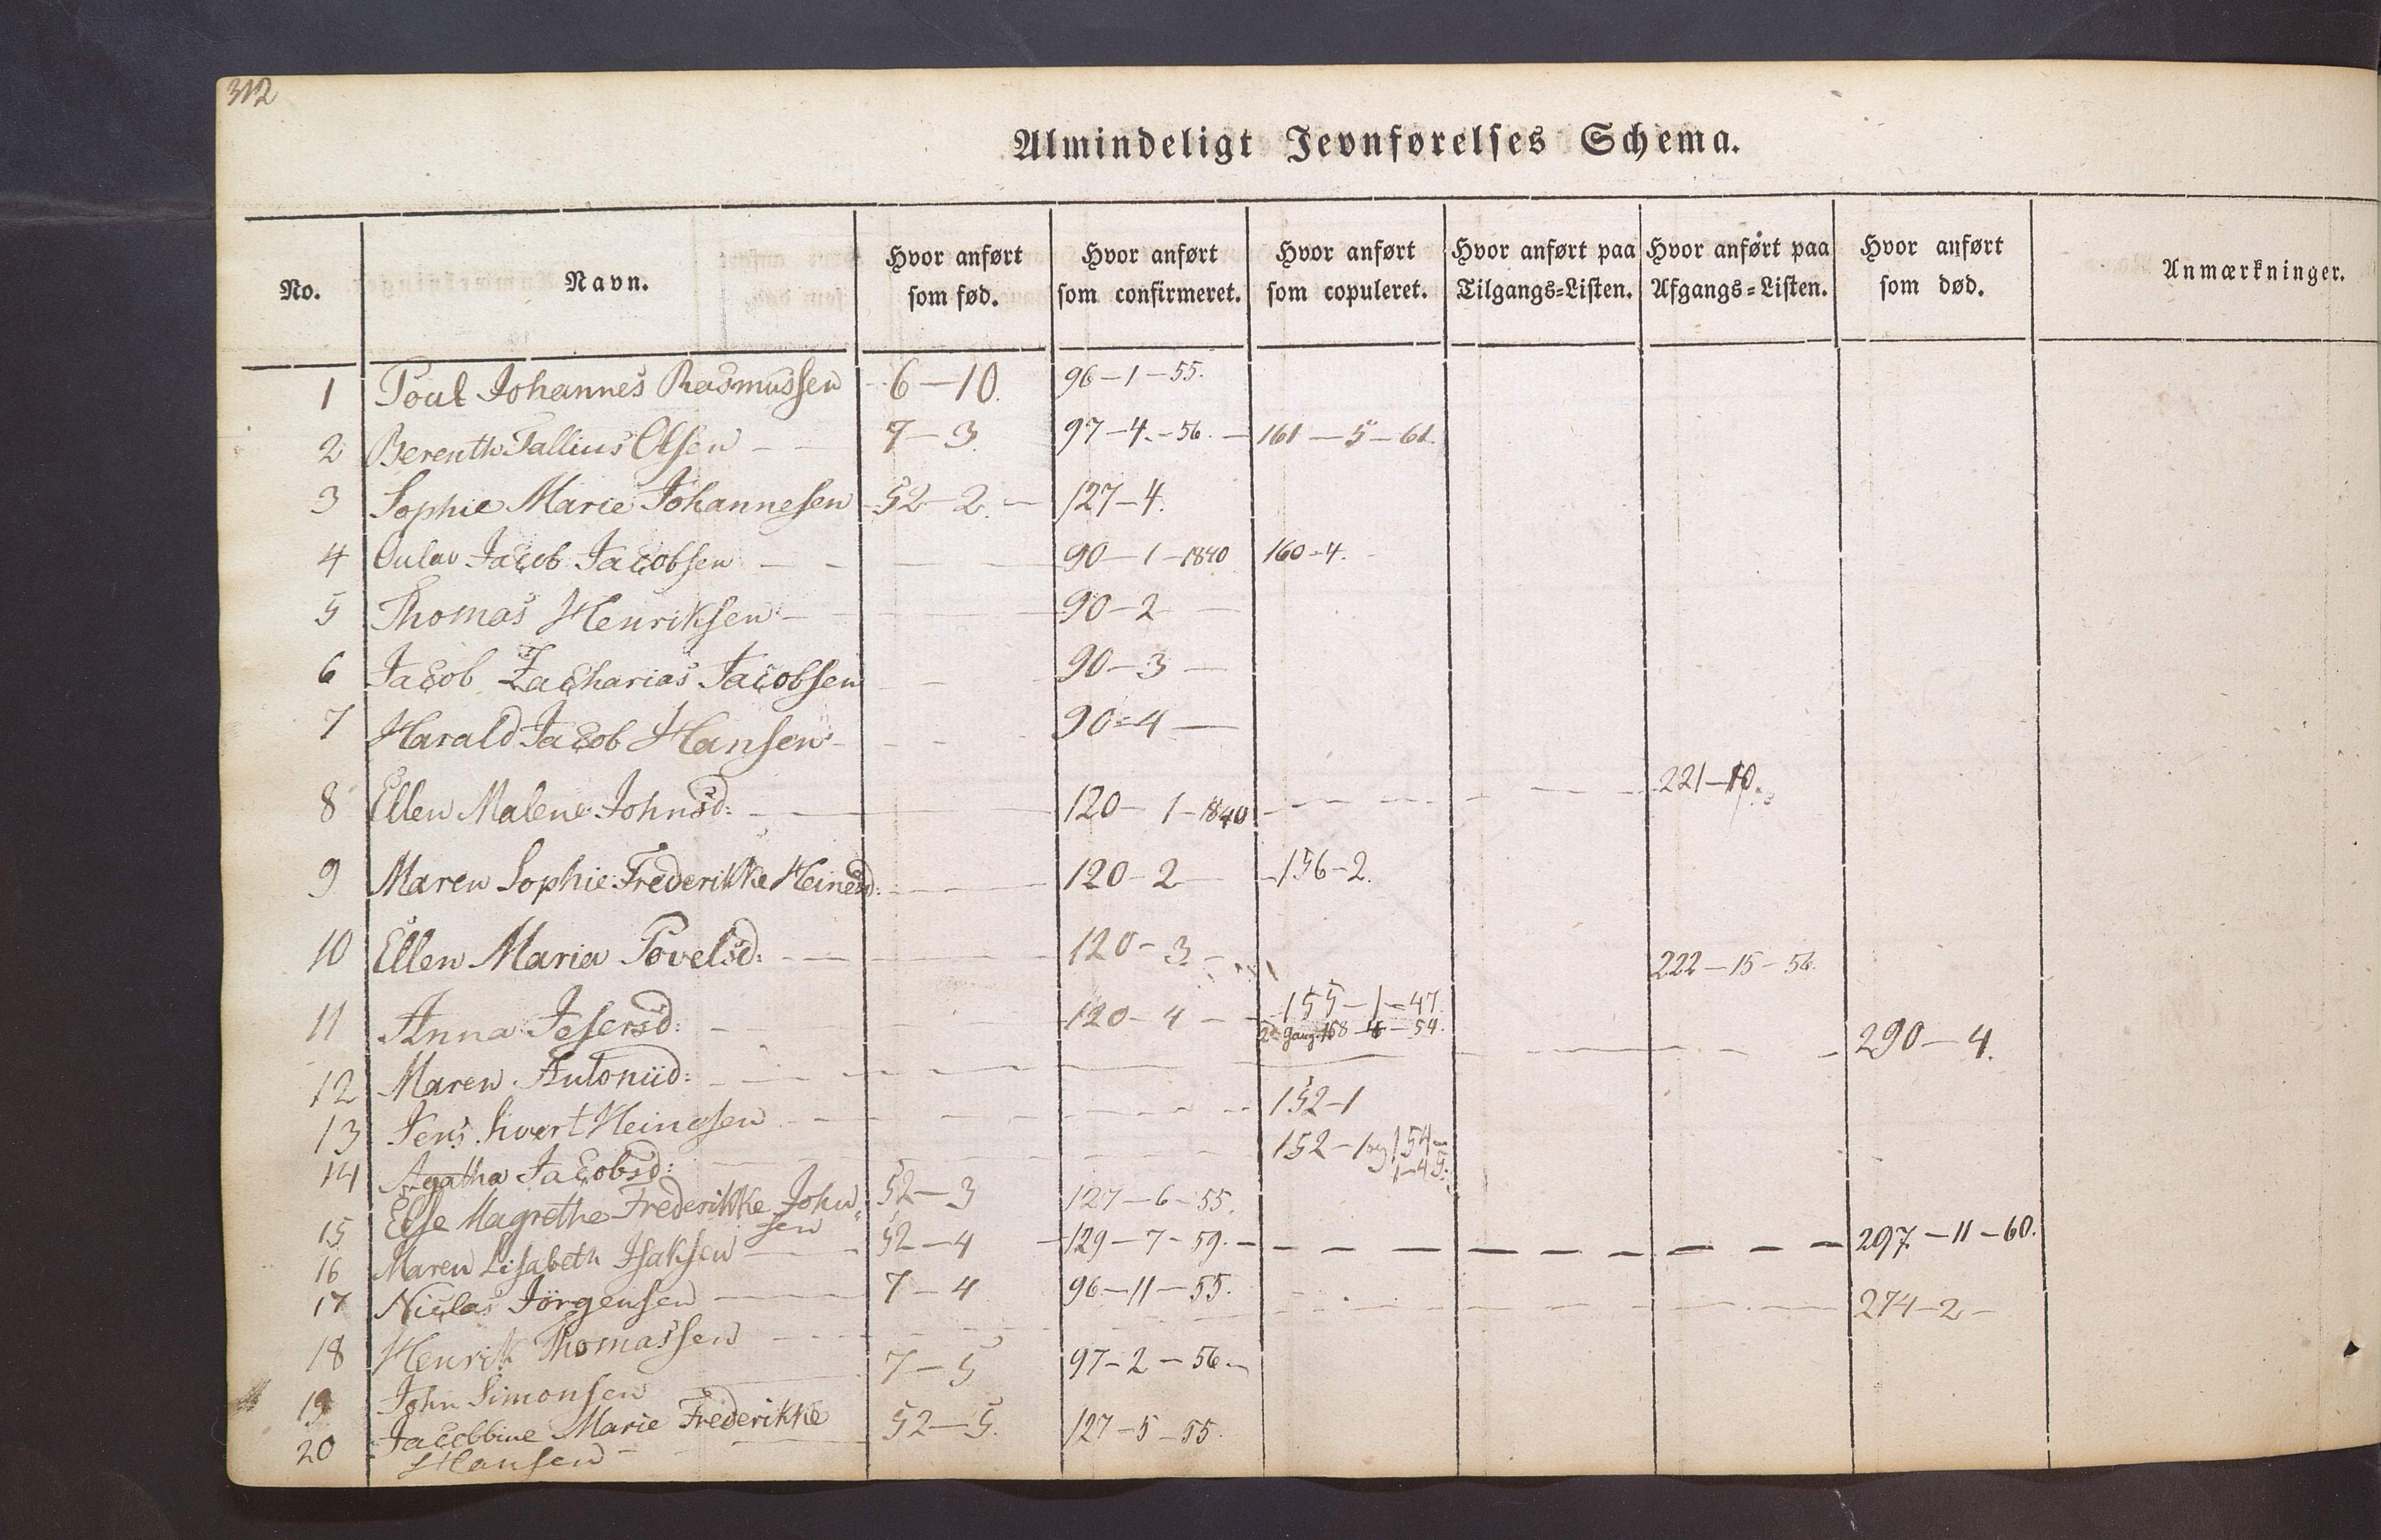 312
Almindeligt Jevnførelses Schema.
No. Navn. Hvor anført som fød. Hvor anført som confirmeret. Hvor anført som copuleret. Hvor anført paa Tilgangs=Listen. Hvor anført paa Afgangs=Listen. Hvor anført som død. Anmærkninger.
1 Poul Johannes Rasmussen 6—10. 96—1—55.
2 Berenth Tallius Olsen 7—3. 97—4.—56. 161—5—61.
3 Sophie Marie Johannesen 52—2. 127—4.
4 Oulav Jacob Jacobsen 90—1—1840 160—4.
5 Thomas Henriksen 90—2
6 Jacob Zacharias Jacobsen 90—3
7 Harald Jacob Hansen 90—4
8 Ellen Malene Johnsd: 120—1—1840 221—10.
9 Maren Sophie Frederikke Heinesd: 120—2 156—2.
10 Ellen Maria Povelsd: 120—3 222—15—56.
11 Anna Jesersd: 120—4 155—1—47
2den Gang 158—4—54. 290—4.
12 Maren Antoniid:
13 Jens Sivert Heinesen 152—1
14 Agatha Jacobsd: 152—1 og 154—
1—45.
15 Else Magrethe Frederikke John„ 52—3 127—6—55.
sen
16 Maren Lisabeth Isaksen 52—4 129—7—59. 297—11—60.
17 Niclas Jörgensen 7—4 96—11—55.
18 Henrik Thomassen 274—2
19 John Simonsen 7—5 97—2—56.
20 Jacobbine Marie Frederikke 52—5. 127—5—55.
Hansen